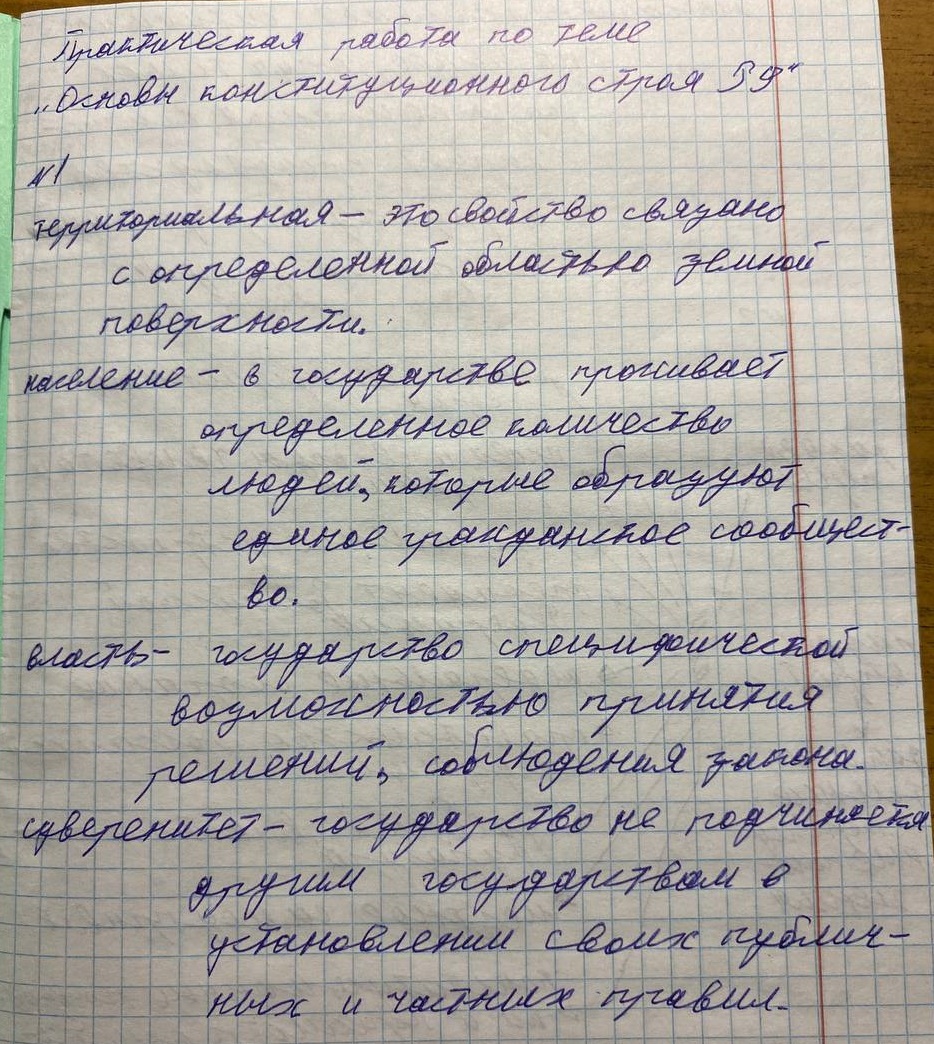 Практическая работа по теме
„Основы конституционного строя РФ"
№1
территориальная – это свойство связано
с определенной областью земной
поверхности.
население – в государстве проживает
определенное количество
людей, которые образуют
единое гражданское сообщест-
во.
власть – государство специфической
возможностью принятия
решений, соблюдения закона.
суверенитет – государство не подчиняется
другим государствам в
установлении своих публич-
ных и частных правил.